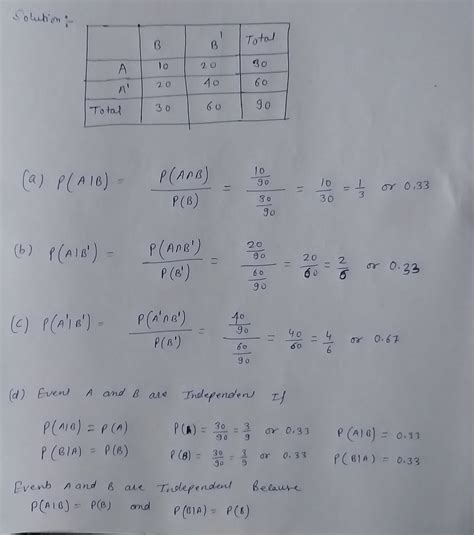 Solution:-
B B' Total
A 10 20 30
A' 20 40 60
Total 30 60 90
(a) P(A|B) = P(A∩B) / P(B) = 10/90 / 30/90 = 10/30 = 1/3 or 0.33
(b) P(A|B') = P(A∩B') / P(B') = 20/90 / 60/90 = 20/60 = 2/6 or 0.33
(c) P(A'|B') = P(A'∩B') / P(B') = 40/90 / 60/90 = 40/60 = 4/6 or 0.67
(d) Event A and B are Independent If
P(A|B) = P(A) P(A) = 30/90 = 3/9 or 0.33 P(A|B) = 0.33
P(B|A) = P(B) P(B) = 30/90 = 3/9 or 0.33 P(B|A) = 0.33
Events A and B are Independent Because
P(A|B) = P(B) and P(B|A) = P(B)